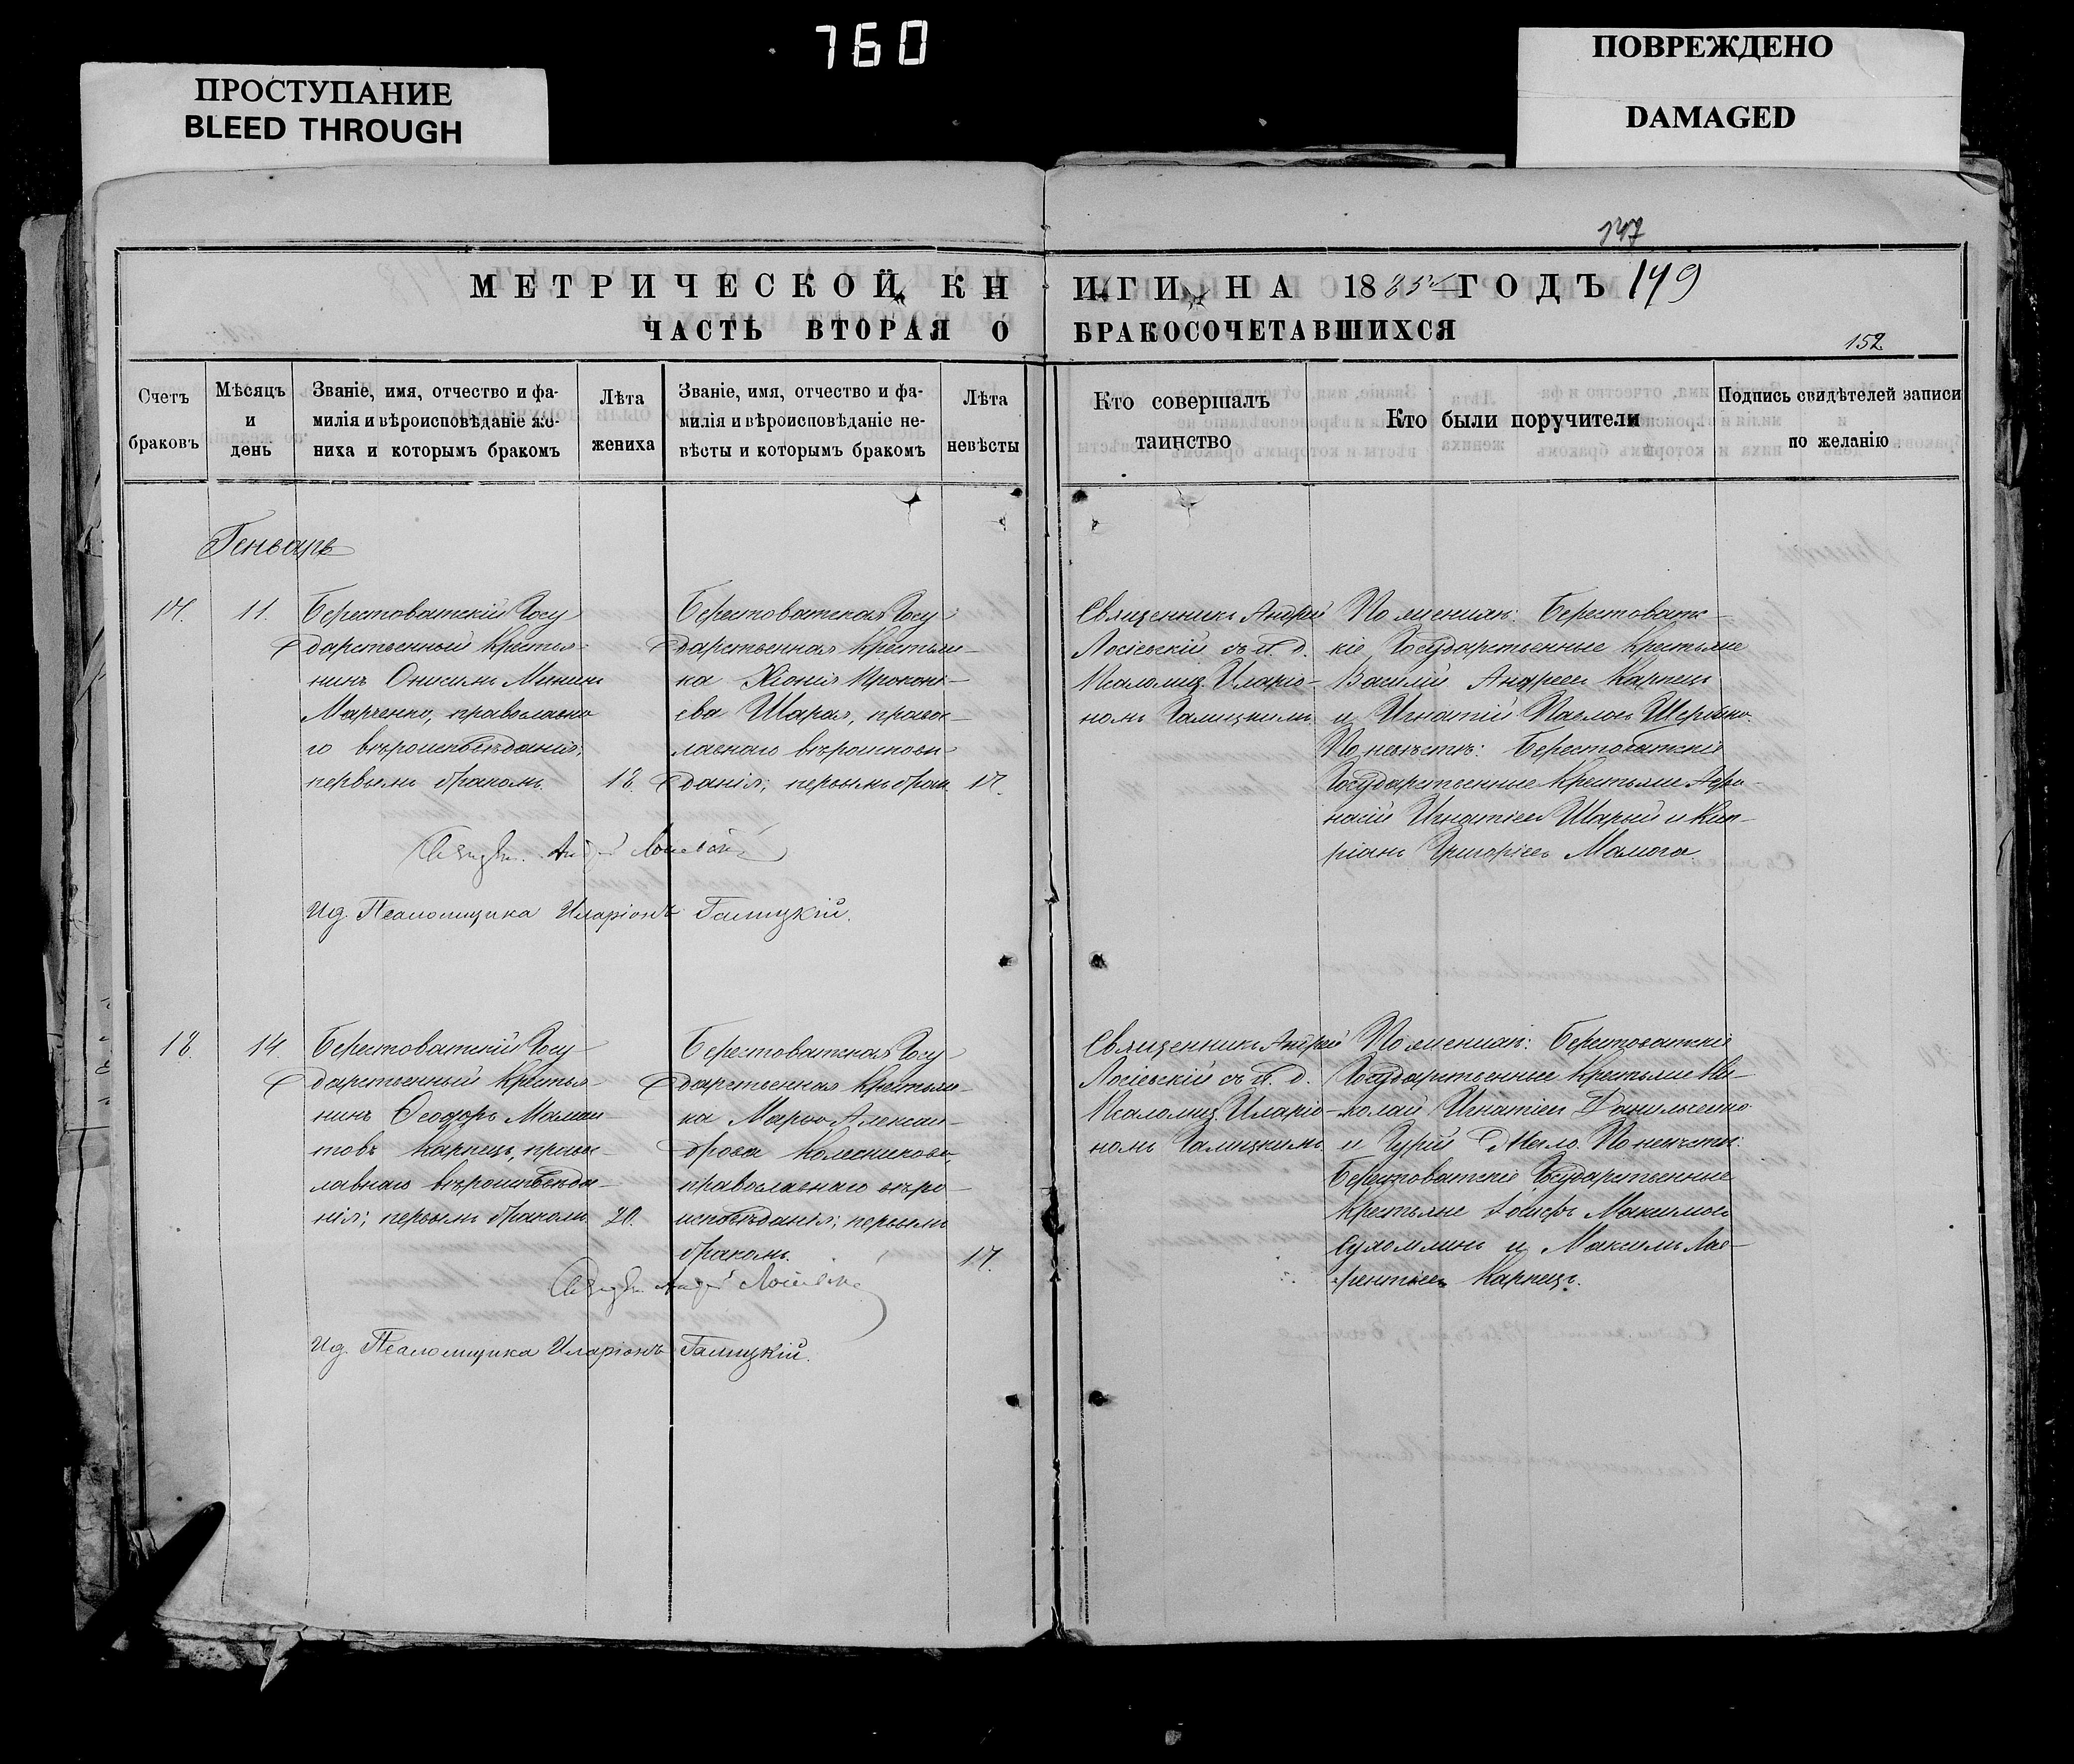 760
ПРОСТУПАНИЕ
BLEED THROUGH
ПОВРЕЖДЕНО
DAMAGED
147
МЕТРИЧЕСКОЙ КНИГИ НА 1885 ГОДЪ 149
ЧАСТЬ ВТОРАЯ О БРАКОСОЧЕТАВШИХСЯ
152
Счетъ браковъ
Мѣсяцъ и день
Званіе, имя, отчество и фа-
милія и вѣроисповѣданіе же-
ниха и которымъ бракомъ
Лѣта жениха
Званіе, имя, отчество и фа-
милія и вѣроисповѣданіе не-
вѣсты и которымъ бракомъ
Лѣта невѣсты
Кто совершалъ
таинство
Кто были поручители
Подпись свидѣтелей записи
по желанію
Генварь
17.
11.
Берестоватскій Госу
дарственный Крестья-
нинъ Онисимъ Мининъ
Марченко, православна
го вѣроисповѣданія,
первымъ бракомъ.
18.
Берестоватская Госу
дарственная Крестьян-
ка Хіонія Прокопі-
ева Шарая, право-
лавнаго вѣроисповѣ-
данія; первымъ брак.
17.
Священникъ Андрей
Лосіевскій съ И. д.
Псаломщ. Иларіо-
номъ Галицкимъ.
По женихѣ: Берестоватс-
кіе Государственные Крестьяне
Василій Андреевъ Карпецъ
и Игнатій Павловъ
По невѣстѣ: Берестоватскіе
Государственные Крестьяне Афа-
насій Игнатіевъ Шарый и Кип-
ріанъ Григоріевъ Момога.
Священ. Андрей Лосіевскій
И.д. Псаломщика Иларіонъ Галицкій.
18.
14.
Берестоватскій Госу-
дарственный Крестья-
нинъ Ѳеодоръ Маман-
товъ Карпецъ, право-
лавнаго вѣроисповѣда-
нія; первымъ бракомъ
20.
Берестоватская Госу
дарственная Крестьян-
ка Марѳа Алексан-
дрова Колесникова,
православнаго вѣро-
исповѣданія; первымъ
бракомъ.
17.
Священникъ Андрей
Лосіевскій съ И. д.
Псаломщ. Иларіо-
номъ Галицкимъ.
По женихѣ: Берестоватскіе
Государственные Крестьяне Ни-
колай Игнатіевъ Данильченко
и Гурій По невѣстѣ:
Берестоватскіе Государственные
Крестьяне Іосифъ Максимовъ
Сухомлинъ и Максимъ Лав-
рентіевъ Карпецъ.
Священ. Андрей Лосіевскій
И.д. Псаломщика Иларіонъ Галицкій.